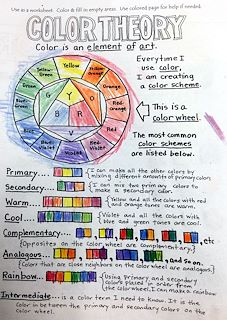 Use as a worksheet. Color & fill in empty areas. Use colored page for help if needed.
COLOR THEORY
Color is an element of art.
Everytime I
use color,
I am creating
a color scheme.
This is a
color wheel.
The most common
color schemes
are listed below.
Yellow
Yellow-Orange
Orange
Red-Orange
Red
Red-Violet
Violet
Blue-Violet
Blue
Blue-Green
Green
Yellow-Green
Y
O
R
V
B
G
Primary...
I can make all the other colors by
mixing different amounts of primary colors.
Secondary...
I can mix two primary colors to
make a secondary color.
Warm...
Yellow and all the colors with red
and orange tones are warm.
Cool...
Violet and all the colors with
blue and green tones are cool.
Complementary... , etc
(Opposites on the color wheel are complementary)
Analogous... and so on.
(Colors that are close neighbors on the color wheel are analogous)
Rainbow...
Using primary and secondary
colors placed in order from
the color wheel, I can make a rainbow
Intermediate... is a color term I need to know. It is the
color in between the primary and secondary colors on the
color wheel.